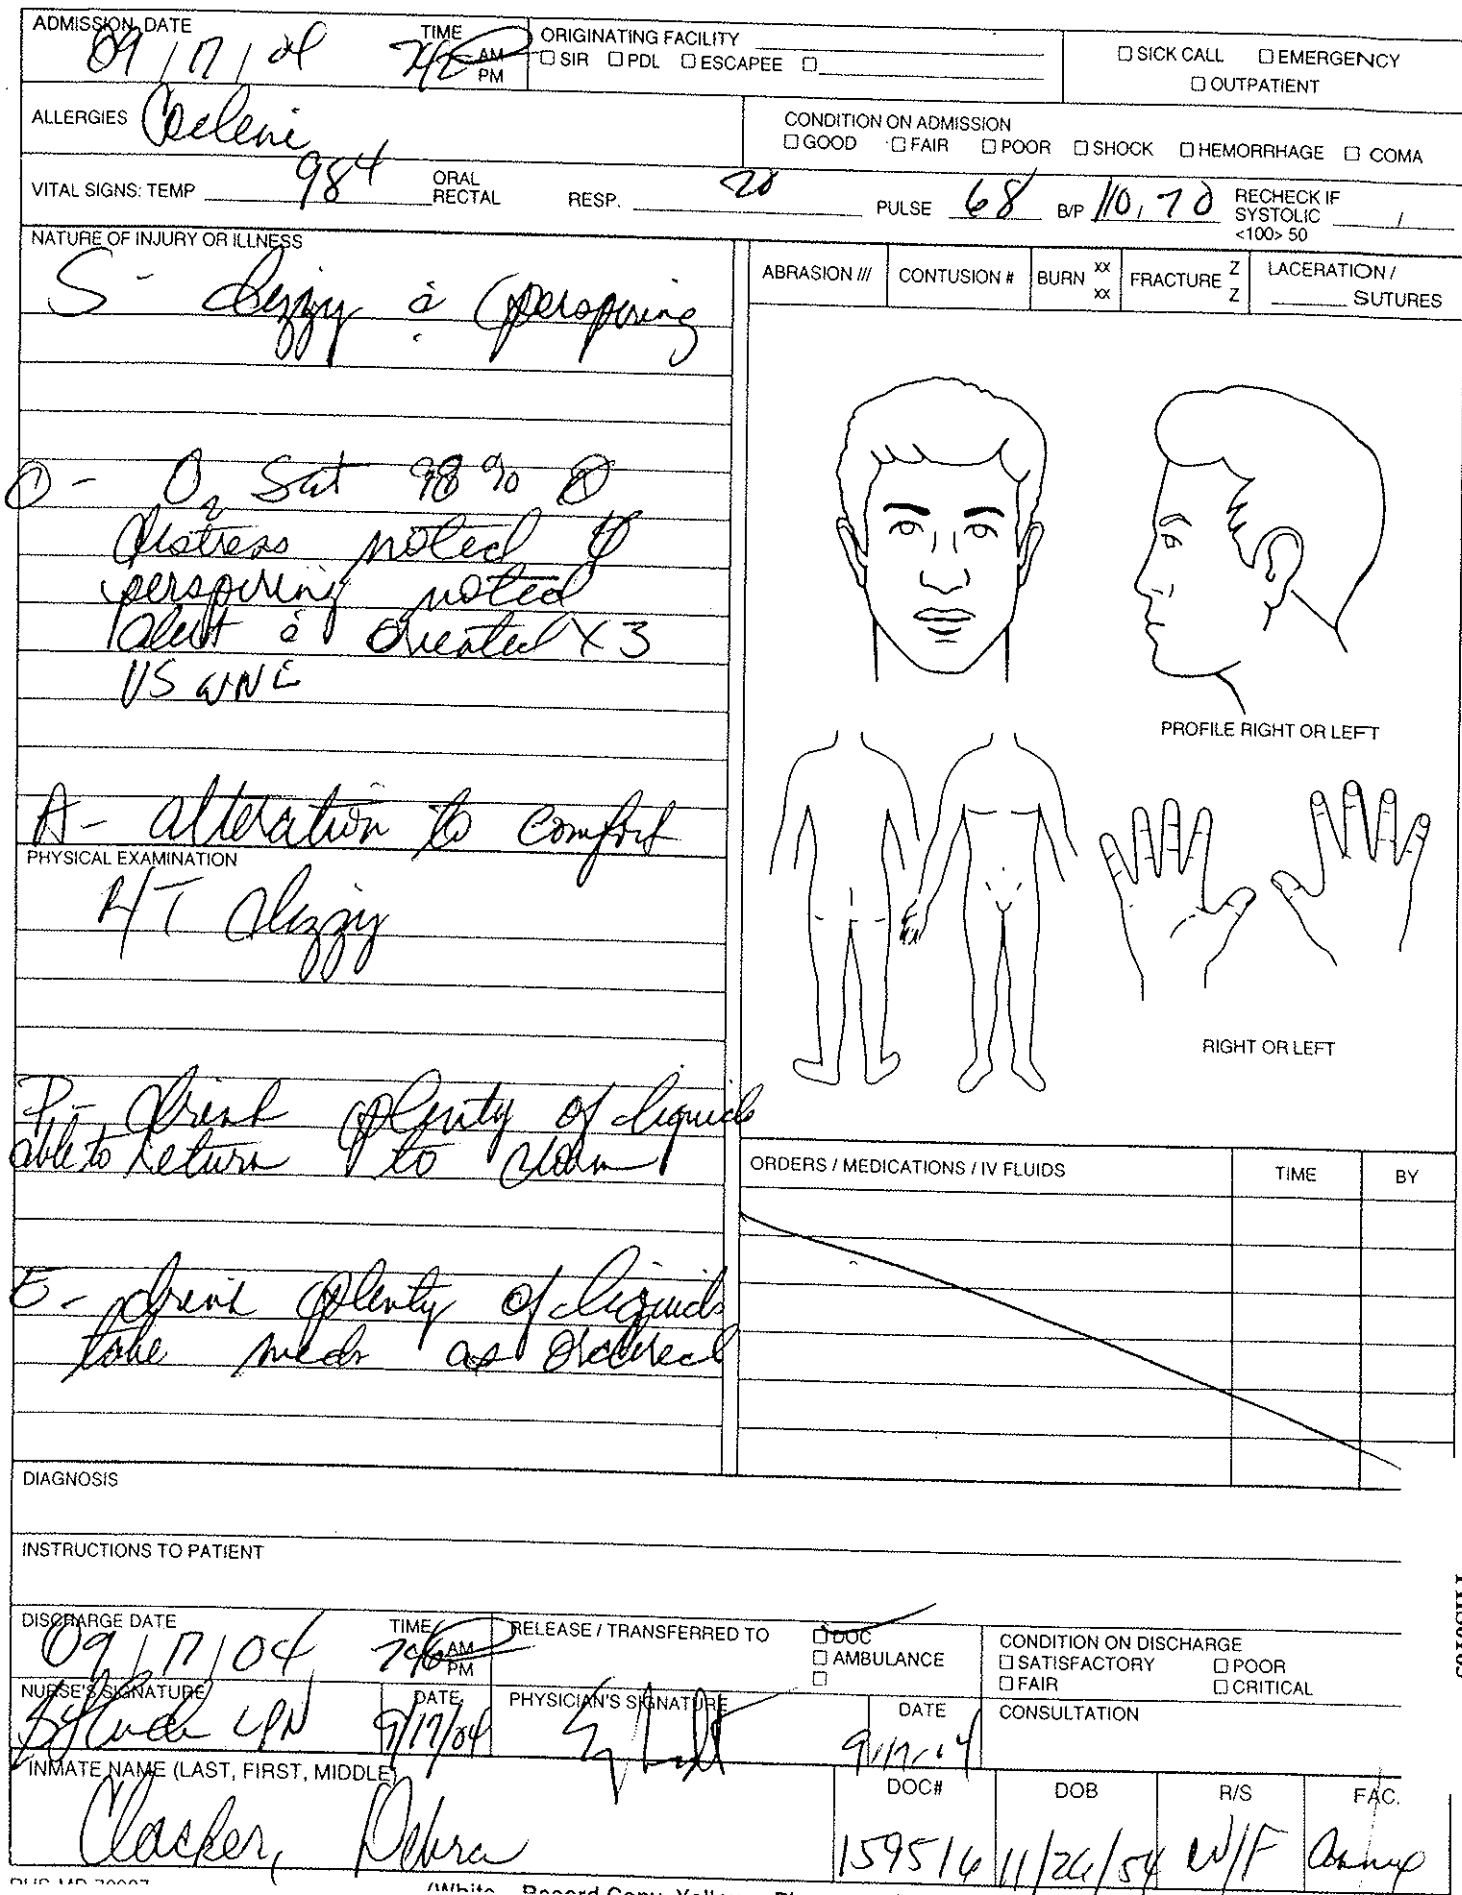 ADMISSION DATE
09 / 17 / 04
TIME
AM
PM
ORIGINATING FACILITY
□ SIR □ PDL □ ESCAPEE □
□ SICK CALL □ EMERGENCY
□ OUTPATIENT
ALLERGIES
CONDITION ON ADMISSION
□ GOOD □ FAIR □ POOR □ SHOCK □ HEMORRHAGE □ COMA
VITAL SIGNS: TEMP 98⁴ ORAL
RECTAL
RESP. 20
PULSE 68 B/P 110, 70
RECHECK IF
SYSTOLIC /
<100> 50
NATURE OF INJURY OR ILLNESS
S - dizzy & perspiring
O - O2 Sat 98% Ø
distress noted Ø
perspiring noted
alert & oriented X3
VS WNL
A - alteration to comfort
PHYSICAL EXAMINATION
R/T dizzy
P - drink plenty of liquids
able to return to dorm
E - drink plenty of liquids
take meds as ordered
ABRASION /// CONTUSION # BURN xx xx FRACTURE Z Z LACERATION /
SUTURES
PROFILE RIGHT OR LEFT
RIGHT OR LEFT
ORDERS / MEDICATIONS / IV FLUIDS TIME BY
DIAGNOSIS
INSTRUCTIONS TO PATIENT
DISCHARGE DATE
09 / 17 / 04
TIME
746 AM
PM
RELEASE / TRANSFERRED TO
□ DOC
□ AMBULANCE
□
CONDITION ON DISCHARGE
□ SATISFACTORY □ POOR
□ FAIR □ CRITICAL
NURSE'S SIGNATURE
LPN
DATE
9/17/04
PHYSICIAN'S SIGNATURE
DATE
9/17/04
CONSULTATION
INMATE NAME (LAST, FIRST, MIDDLE)
Clacker, Debra
DOC#
159516
DOB
11/26/54
R/S
W/F
FAC.